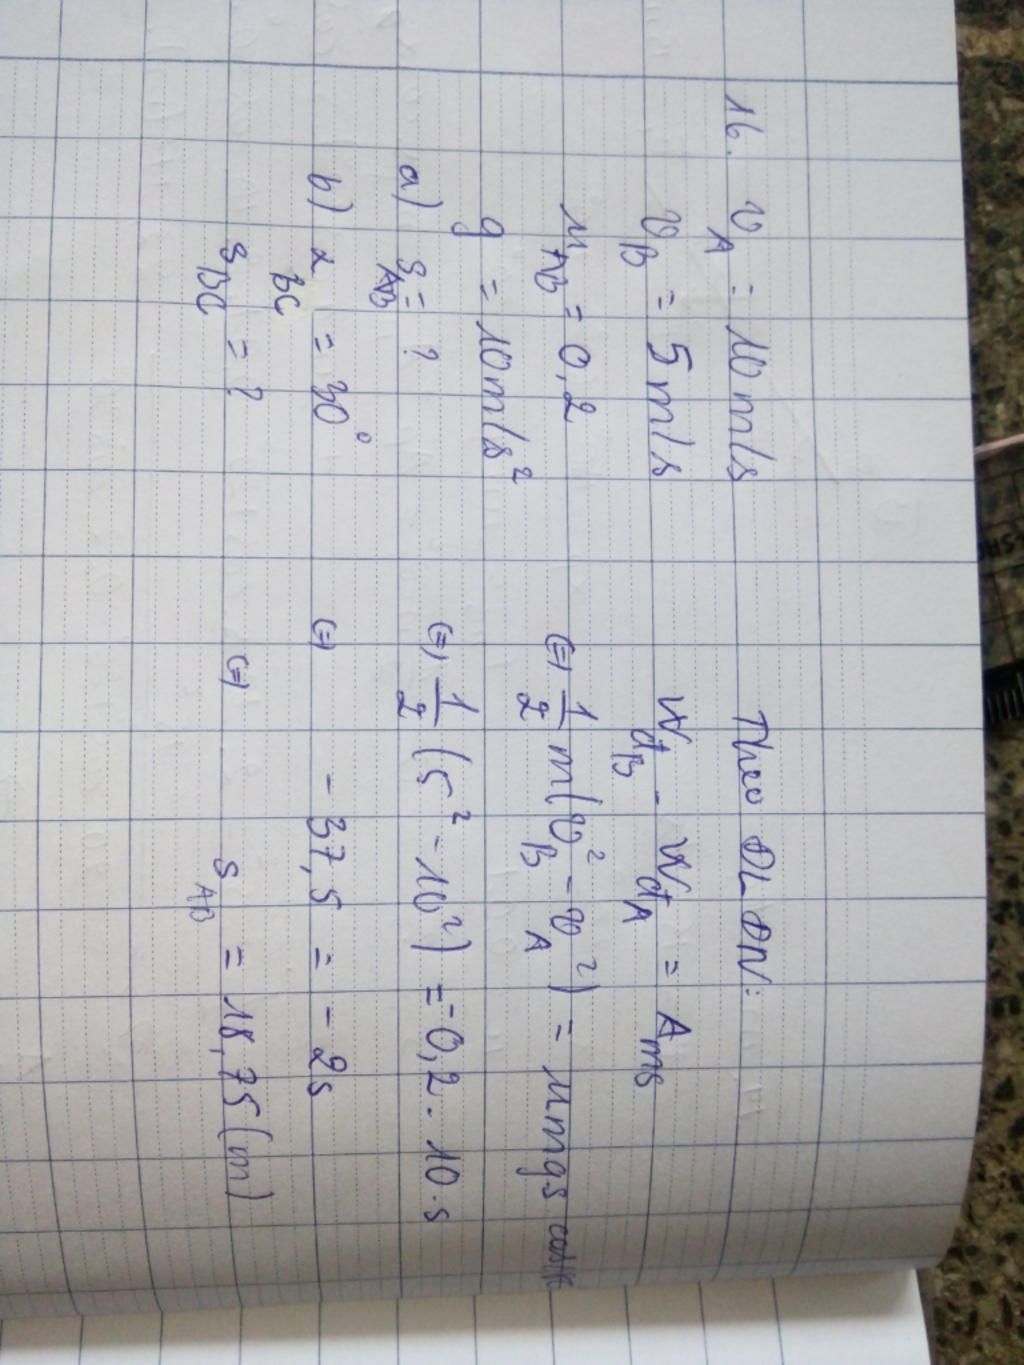 16. v_A = 10 m/s
v_B = 5 m/s
μ_AB = 0,2
g = 10 m/s²
a) s_AB = ?
b) α_BC = 30°
s_BC = ?
Theo ĐL ĐN:
W_đB - W_đA = A_ms
(=) 1/2 m(v_B² - v_A²) = μmgs
(=) 1/2 (5² - 10²) = -0,2 . 10 . s
(=) - 37,5 = - 2s
(=) s_AB = 18,75 (m)